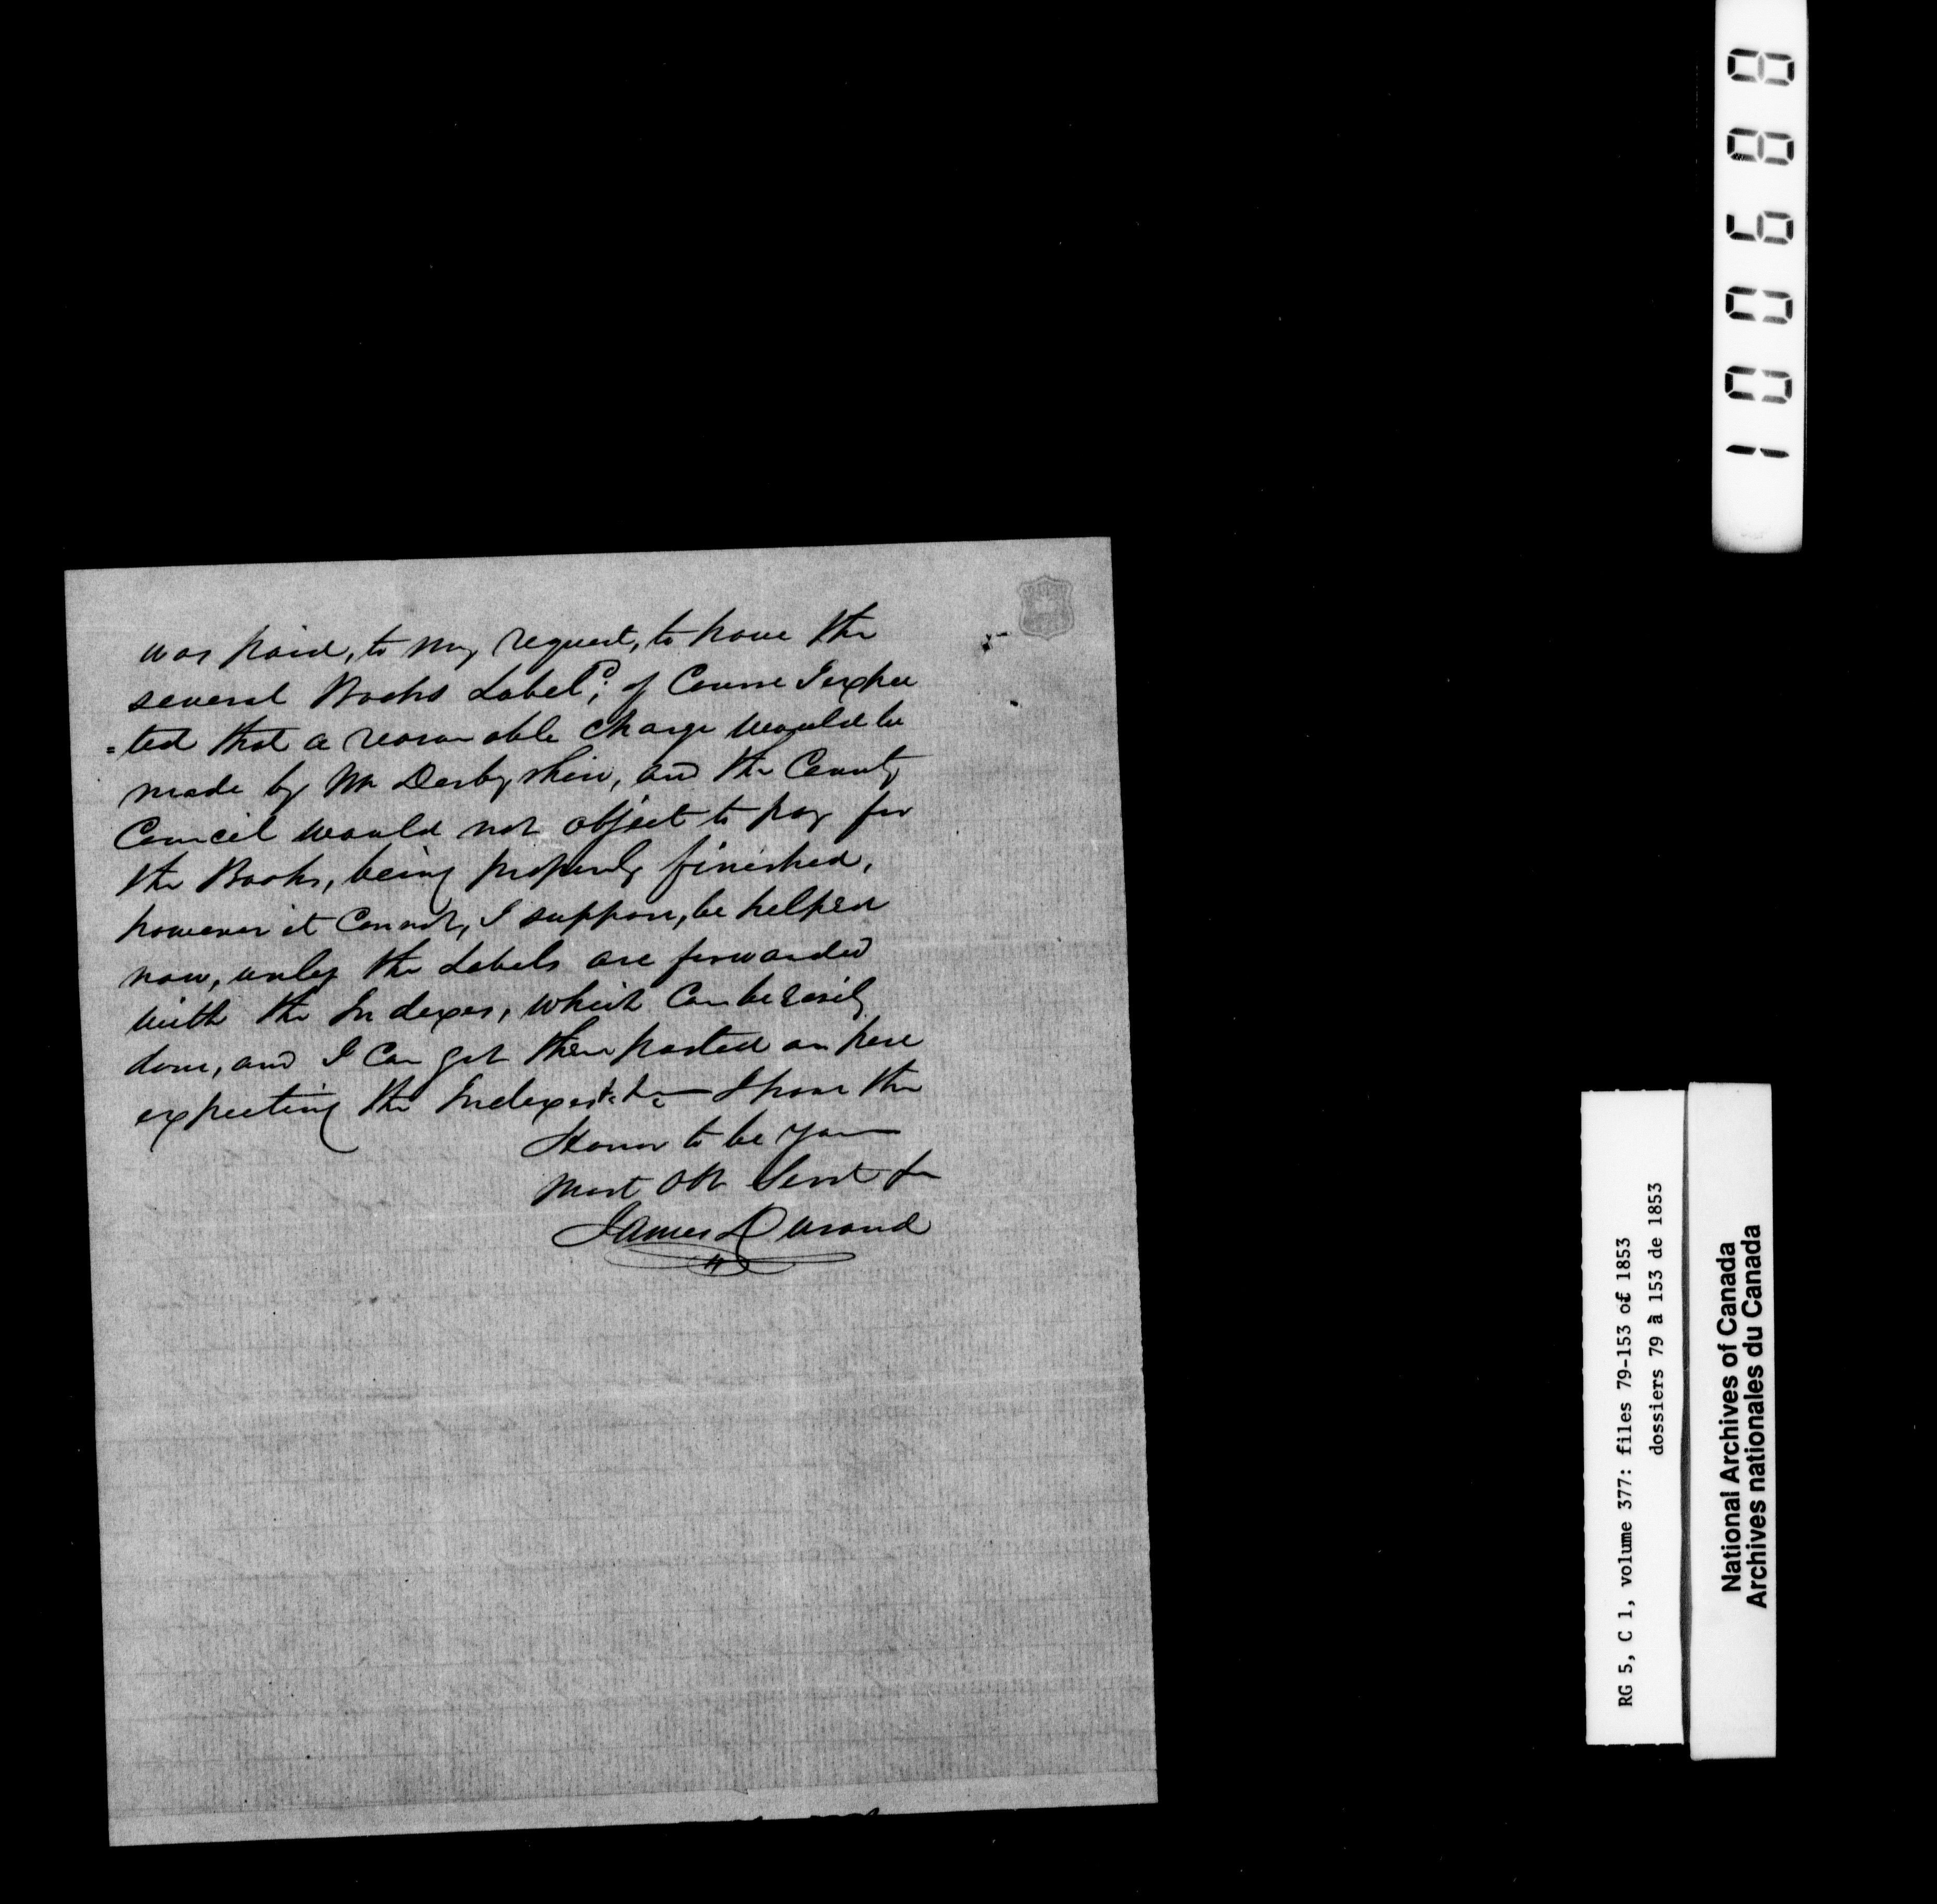 was paid, to my request, to have the
several Books Label^d; of Course I expec
=ted that a reasonable charge would be
made by Mr Derbyshire, and the County
Council would not object to pay for
the Books, being properly finished,
however it Cannot, I suppose, be helped
now, unless the Labels are forwarded
with the Indexes, which Can be Easily
done, and I Can get them pasted on here
expecting the Indexes &c &c I have the
Honor to be Your
Most Obt Servt
James Durand
100688
RG 5, C 1, volume 377: files 79-153 of 1853
dossiers 79 à 153 de 1853
National Archives of Canada
Archives nationales du Canada